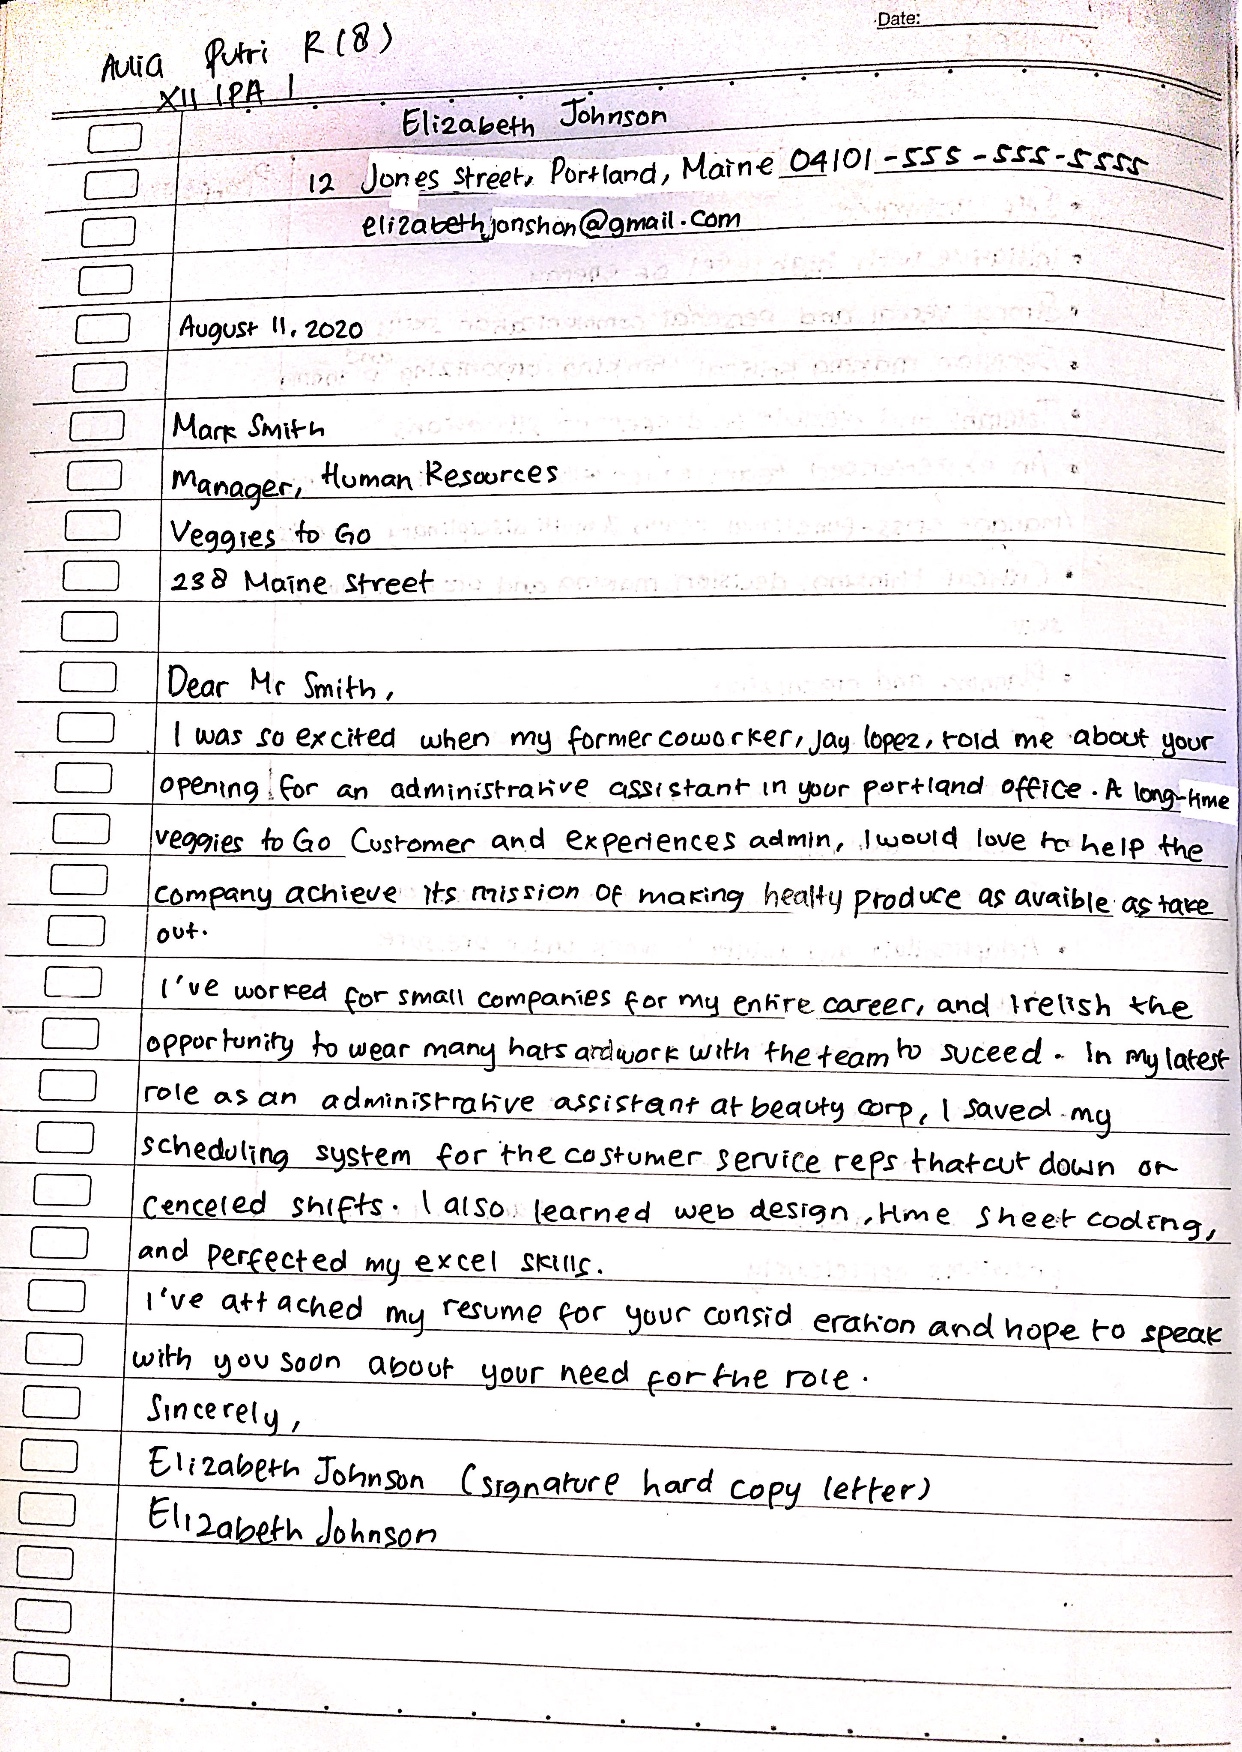 Date:
Aulia Putri R (8)
XII IPA 1
Elizabeth Johnson
12 Jones Street, Portland, Maine 04101 - 555 - 555 - 5555
elizabethjonshon@gmail.com
August 11, 2020
Mark Smith
Manager, Human Resources
Veggies to Go
238 Maine Street
Dear Mr Smith,
I was so excited when my former coworker, Jay lopez, told me about your
opening for an administrative assistant in your portland office. A long-time
veggies to Go Customer and experiences admin, I would love to help the
company achieve its mission of making healty produce as avaible as take
out.
I've worked for small companies for my entire career, and I relish the
opportunity to wear many hats and work with the team to suceed. In my latest
role as an administrative assistant at beauty corp, I saved my
scheduling system for the costumer service reps that cut down on
cenceled shifts. I also learned web design, time sheet coding,
and perfected my excel skills.
I've attached my resume for your consid eration and hope to speak
with you soon about your need for the role.
Sincerely,
Elizabeth Johnson (signature hard copy letter)
Elizabeth Johnson